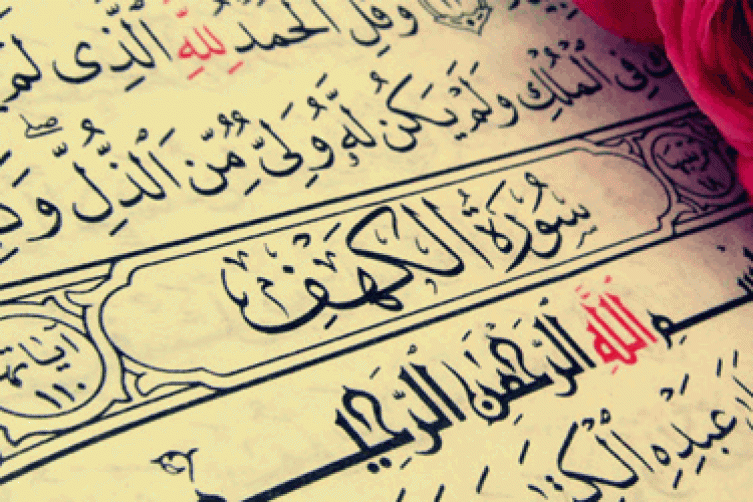 وَقُلِ ٱلْحَمْدُ لِلَّهِ ٱلَّذِى لَمْ
فِى ٱلْمُلْكِ وَلَمْ يَكُن لَّهُۥ وَلِىٌّ مِّنَ ٱلذُّلِّ
سُورَةُ الْكَهْفِ
آياتها ١١٠
ٱللَّهِ ٱلرَّحْمَٰنِ ٱلرَّحِيمِ
عَبْدِهِ